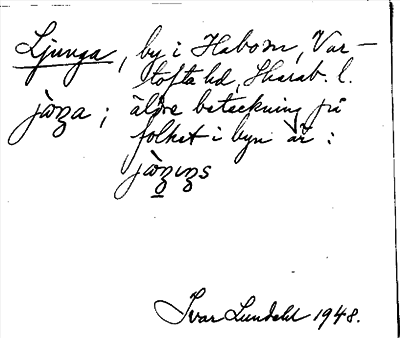 Ljunga, by i Habom, Var-
tofta hd, Skarab. l.
jὼꞑa; äldre beteckning på
folket i byn är:
jὼꞑıꞑs
Ivar Lundahl 1948.